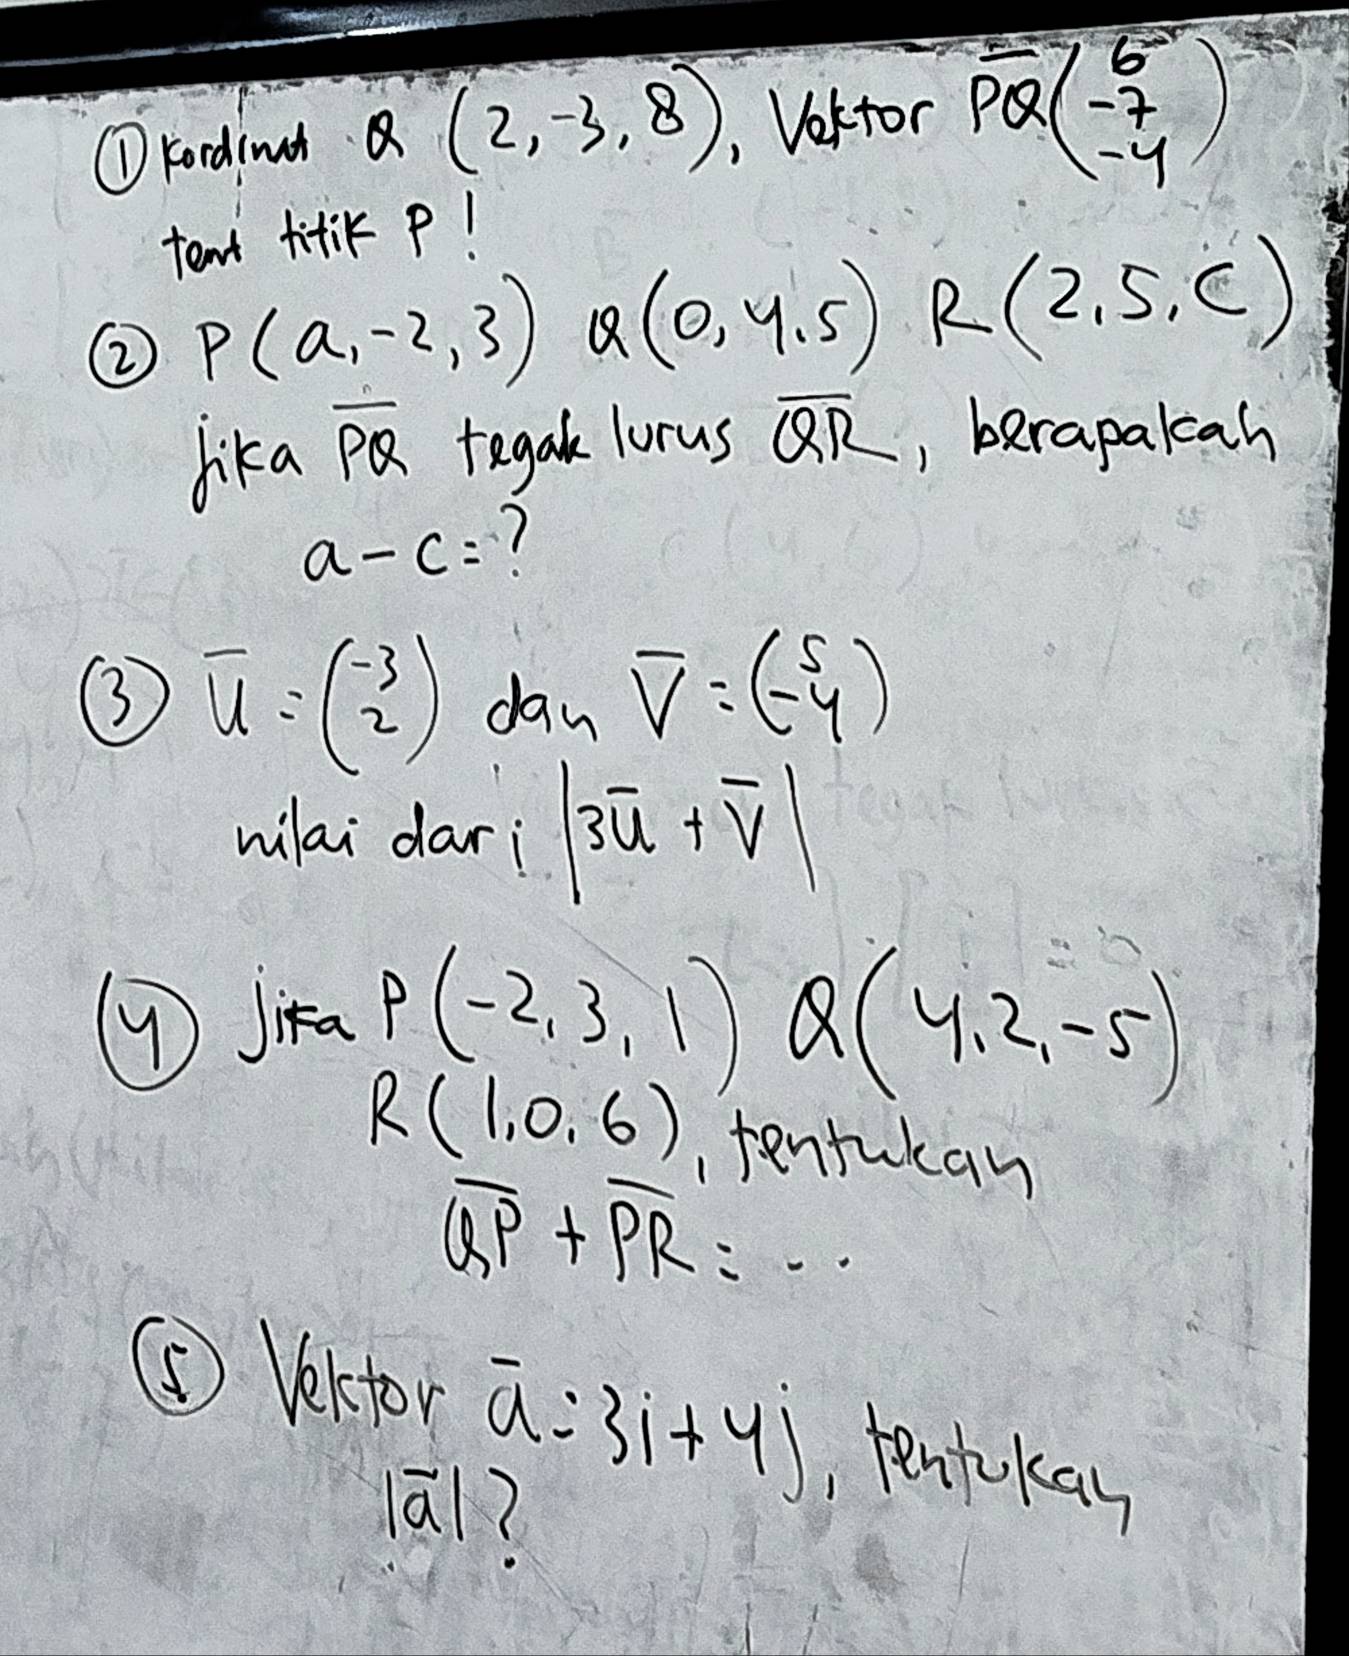 ① Kordinat Q (2,-3,8), Vektor PQ (6 -7 -4)
tent titik P!
② P(a,-2,3) Q(0,4,5) R(2,5,C)
jika PQ tegak lurus QR, berapakah
a-c=?
③ ū=(-3 2) dan V̄=(5 -4)
nilai dari |3ū+V̄|
④ Jika P(-2,3,1) Q(4,2,-5)
R(1,0,6), tentukan
QP+PR=...
⑤ Vektor ā=3i+4j, tentukan
|ā|?